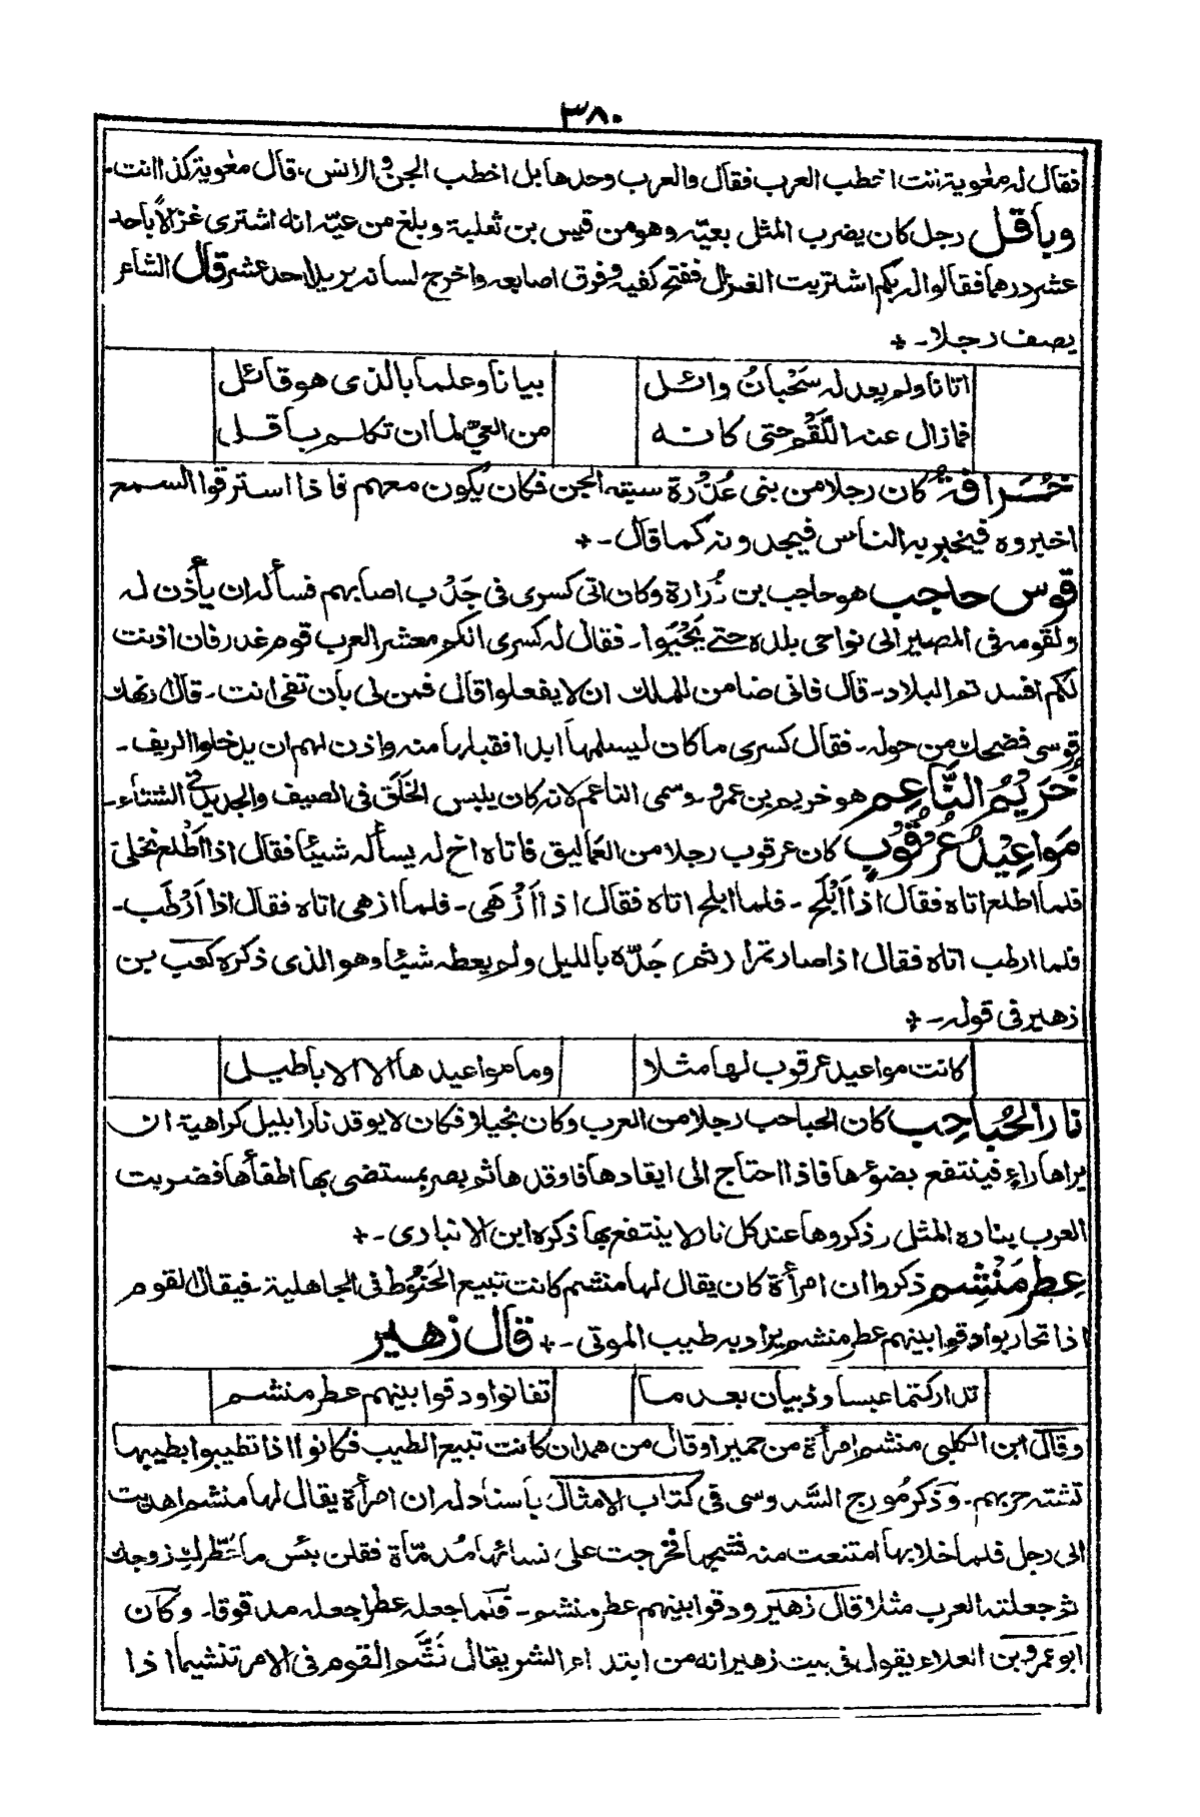 ٣٨٠
فقال له معٰوية انت اخطب العرب فقال والعرب وحدها بل اخطب الجن والانس، قال معٰوية كذا انت۔
وباقل رجل كان يضرب المثل بعيّه وهو من قيس بن ثعلبة وبلغ من عيّه انه اشترى غزالاً باحد
عشر درهما فقالوا له بكم اشتريت الغزال ففتح كفيه وفرق اصابعه واخرج لسانه يريد احد عشر قال الشاعر
يصف رجلا۔ +
اتانا ولم يعدله سَحْبانُ وائل
بيانا وعلما بالذى هو قائل
فمازال عنه اللَّقْم حتى كانه
من العيّ لما ان تكلم باقل
خُرافةُ كان رجلا من بنى عُذْرة سبته الجن فكان يكون معهم فاذا استرقوا السمع
اخبروه فيخبر به الناس فيجدونه كما قال۔ +
قوس حاجب هو حاجب بن زُرارة وكان اتى كسرى فى جَدْب اصابهم فسأله ان يأذن له
ولقومه فى المصير الى نواحى بلده حتے يَحْيَوا۔ فقال له كسرى انكم معشر العرب قوم غدر فان اذنت
لكم افسدتم البلاد۔ قال فانى ضامن للملك ان لا يفعلوا قال فمن لى بان تفى انت۔ قال ارهنك
قوسى فضحك من حوله۔ فقال كسرى ما كان ليسلمها ابدا فقبلها منه واذن لهم ان يدخلوا الريف۔
خُرَيْمُ النَّاعِم هو خريم بن عمرو۔ وسمى الناعم لانه كان يلبس الخَلَق فى الصيف والجديد فى الشتاء۔
مَواعِيْدُ عُرْقُوْبٍ كان عرقوب رجلا من العماليق فاتاه اخ له يسأله شيئا فقال اذا اَطْلع نخلىْ
فلما اطلع اتاه فقال اذا اَبْلَح۔ فلما ابلح اتاه فقال اذا اَزْهَى۔ فلما ازهى اتاه فقال اذا اَرْطَب۔
فلما ارطب اتاه فقال اذا صار تمرا، ثم جَدّه بالليل ولم يعطه شيئا وهو الذى ذكره كعب بن
زهير فى قوله۔ +
كانت مواعيد عرقوب لها مثلا
وما مواعيدها الا الاباطيل
نار الحُبَاحِب كان الحباحب رجلا من العرب وكان بخيلا فكان لا يوقد نارا بليل كراهية ان
يراها راءٍ فينتفع بضوئها فاذا احتاج الى ايقادها فاوقدها ثم بصر بمستضى بها اطفأها فضربت
العرب بناره المثل وذكروها عند كل نار لا ينتفع بها ذكره ابن الانبارى۔ +
عِطر مَنْشِم ذكروا ان امرأة كان يقال لها منشم كانت تبيع الحَنُوْط فى الجاهلية۔ فيقال للقوم
اذا تحاربوا دقوا بينهم عطر منشم يراد به طيب الموتى۔ + قال زهير
تداركتما عبسا وذبيان بعد ما
تفانوا ودقوا بينهم عطر منشم
وقال ابن الكلبى منشم امرأة من حمير او قال من همدان كانت تبيع الطيب فكانوا اذا تطيبوا بطيبها
تشته حربهم۔ وذكر مُورج السَّدوسى فى كتاب الامثال باسناد له ان امرأة يقال لها منشم اهديت
الى رجل فلما خلا بها امتنعت منه فشجها فخرجت على نسائها مُدمّاة فقلن بئس ما عَطّركِ زوجك
ثم جعلته العرب مثلا قال زهير ودقوا بينهم عطر منشم۔ فلما جعله عطرا جعله مدقوقا۔ وكان
ابو عمرو بن العلاء يقول فى بيت زهير انه من ابتداء الشر يقال نَشَّم القوم فى الامر تنشيما اذا